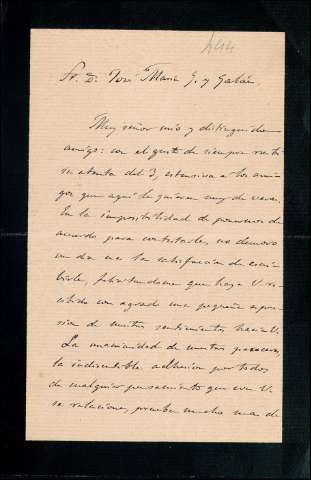 Sr. D. José María G. y Galán.
Muy señor mío y distinguido
amigo: con el gusto de siempre recibí
su atenta del 3, extensiva a los ami-
gos que aquí le quieren muy de veras.
En la imposibilidad de ponernos de
acuerdo para contestarle, no demoro
un día más la satisfacción de escri-
birle, felicitándome que haya V. re-
cibido con agrado una pequeña expre-
sión de nuestros sentimientos hacia V.
La unanimidad de nuestros pareceres,
la indiscutible adhesión por todos
de cualquier pensamiento que con V.
se relacione, prueba mucho más de